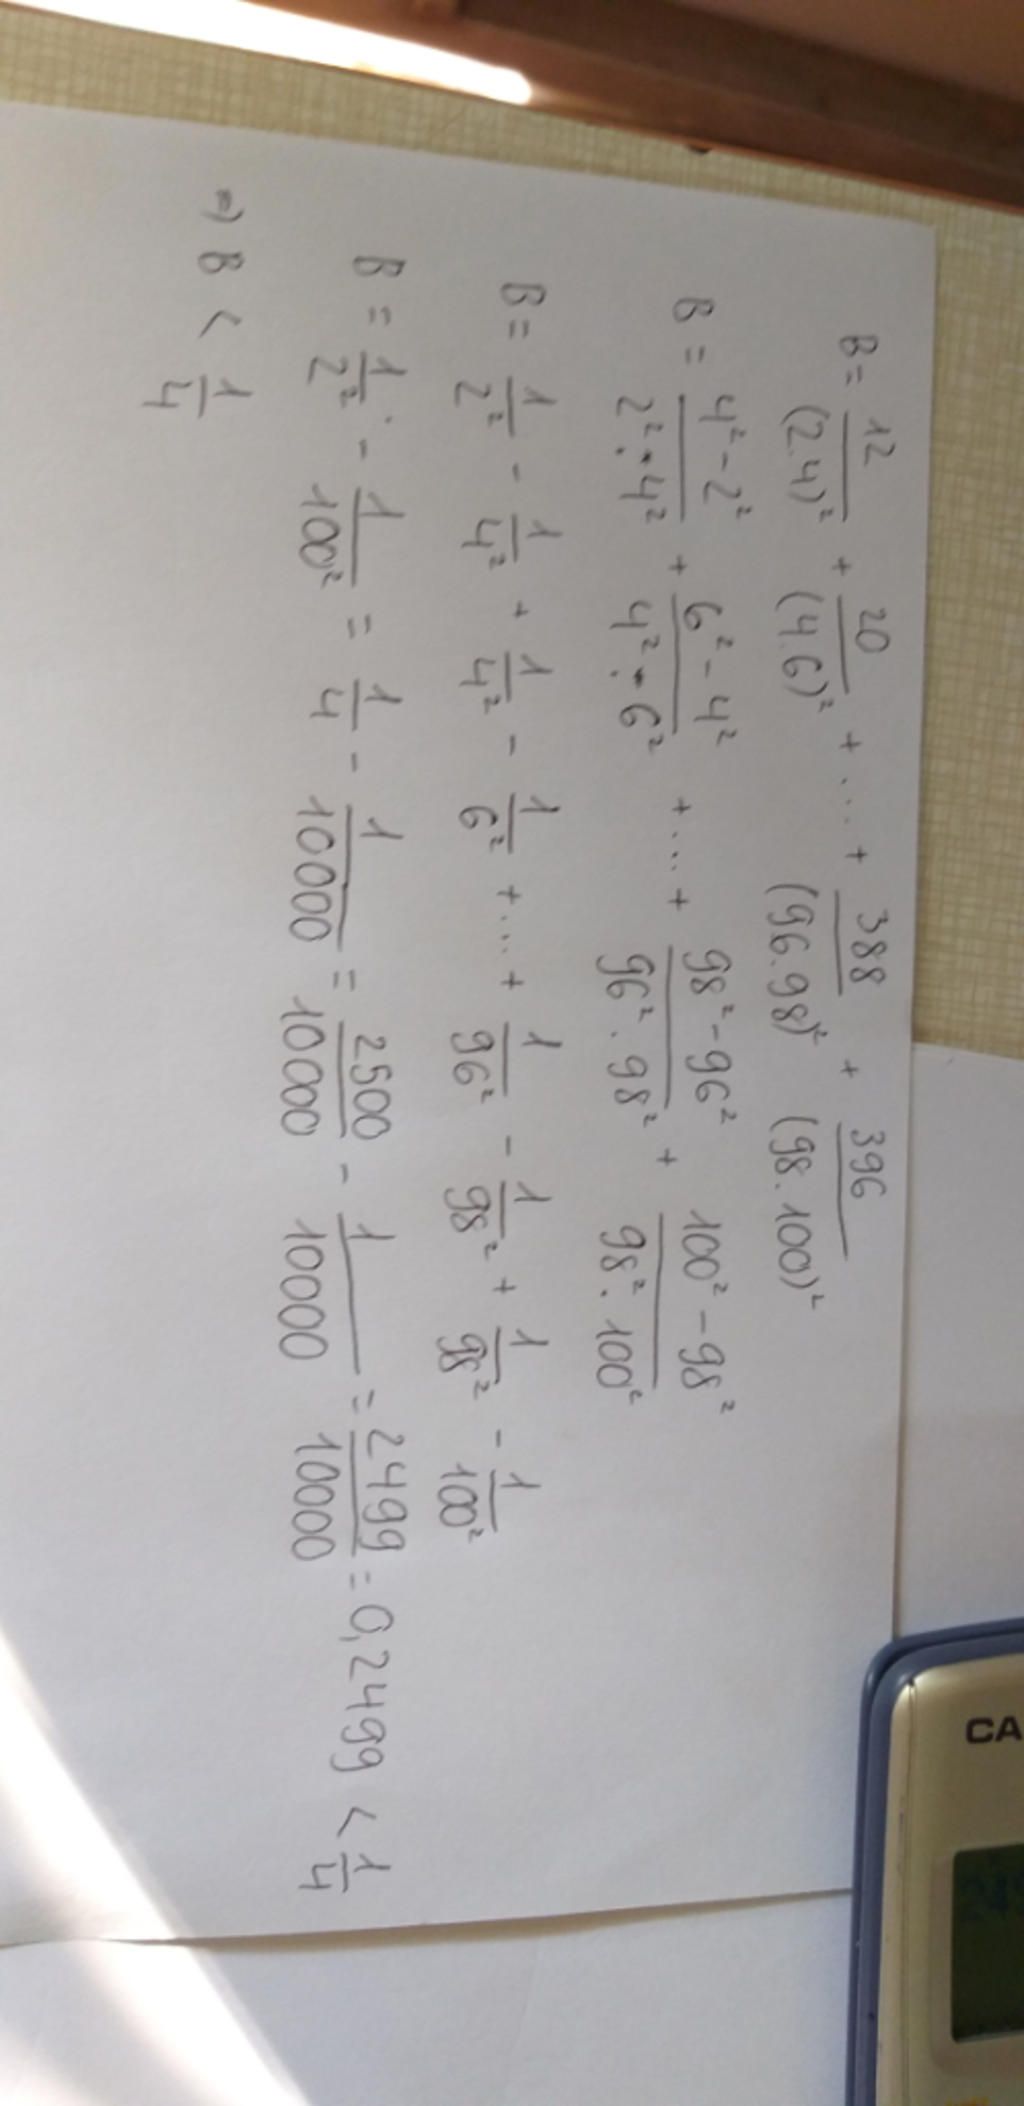 B = 12/(2.4)² + 20/(4.6)² + ... + 388/(96.98)² + 396/(98.100)²
B = 4²-2²/2².4² + 6²-4²/4².6² + ... + 98²-96²/96².98² + 100²-98²/98².100²
B = 1/2² - 1/4² + 1/4² - 1/6² + ... + 1/96² - 1/98² + 1/98² - 1/100²
B = 1/2² - 1/100² = 1/4 - 1/10000 = 2500/10000 - 1/10000 = 2499/10000 = 0,2499 < 1/4
=> B < 1/4
CA